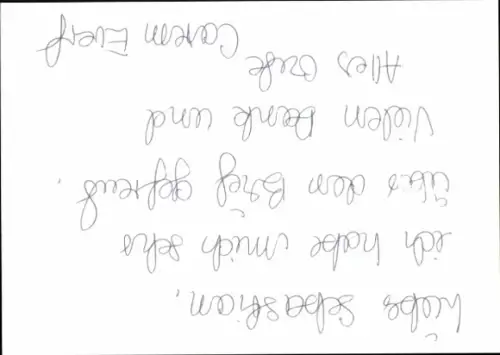 Lieber Sebastian,
ich habe mich sehr
über den Brief gefreut.
Vielen Dank und
Alles Gute
Carem Evers